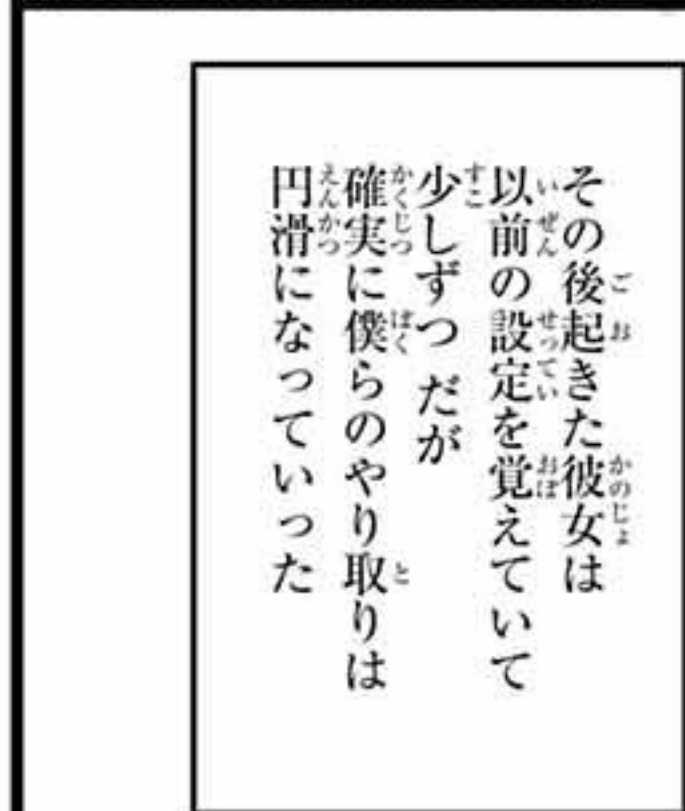 その後起きた彼女は
以前の設定を覚えていて
少しずつ だが
確実に僕らのやり取りは
円滑になっていった